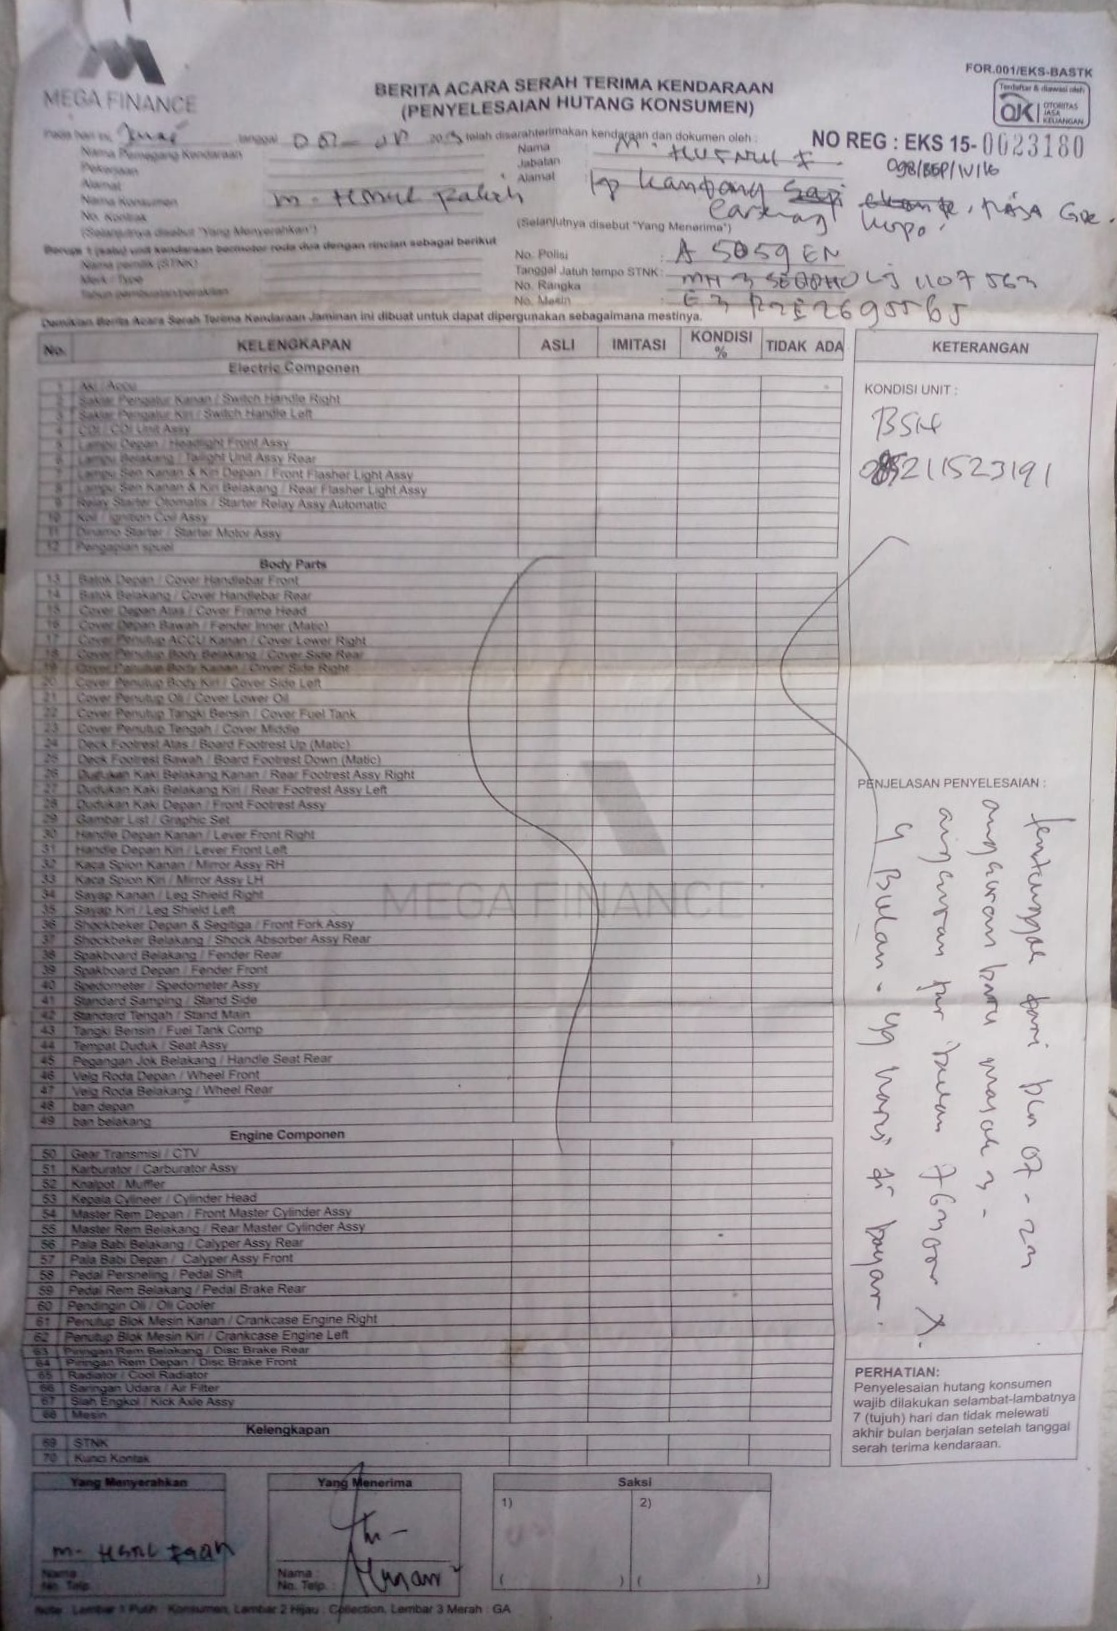 MEGA FINANCE
BERITA ACARA SERAH TERIMA KENDARAAN
(PENYELESAIAN HUTANG KONSUMEN)
FOR.001/EKS-BASTK
Terdaftar & diawasi oleh
OJK OTORITAS JASA KEUANGAN
NO REG : EKS 15-0023180
098/BEP/IV/16
Pada hari ini, tanggal telah diserahterimakan kendaraan dan dokumen oleh :
Nama Pemegang Kendaraan
Pekerjaan
Alamat
Nama Konsumen
No. Kontrak
(Selanjutnya disebut "Yang Menyerahkan")
Nama
Jabatan
Alamat : kp kandang sapi
(Selanjutnya disebut "Yang Menerima")
Berupa 1 (satu) unit kendaraan bermotor roda dua dengan rincian sebagai berikut
Nama pemilik (STNK)
Merk / Type
Tahun pembuatan/perakitan
No. Polisi : A 5059 EN
Tanggal Jatuh tempo STNK :
No. Rangka
No. Mesin
Demikian Berita Acara Serah Terima Kendaraan Jaminan ini dibuat untuk dapat dipergunakan sebagaimana mestinya.
No. KELENGKAPAN ASLI IMITASI KONDISI % TIDAK ADA KETERANGAN
Electric Componen
1 Aki / Accu
2 Saklar Pengatur Kanan / Switch Handle Right
3 Saklar Pengatur Kiri / Switch Handle Left
4 CDI / CDI Unit Assy
5 Lampu Depan / Headlight Front Assy
6 Lampu Belakang / Taillight Unit Assy Rear
7 Lampu Sen Kanan & Kiri Depan / Front Flasher Light Assy
8 Lampu Sen Kanan & Kiri Belakang / Rear Flasher Light Assy
9 Relay Starter Otomatis / Starter Relay Assy Automatic
10 Koil / Ignition Coil Assy
11 Dinamo Starter / Starter Motor Assy
12 Pengapian spuel
KONDISI UNIT :
BSH
085211523191
Body Parts
13 Batok Depan / Cover Handlebar Front
14 Batok Belakang / Cover Handlebar Rear
15 Cover Depan Atas / Cover Frame Head
16 Cover Depan Bawah / Fender Inner (Matic)
17 Cover Penutup ACCU Kanan / Cover Lower Right
18 Cover Penutup Body Belakang / Cover Side Rear
19 Cover Penutup Body Kanan / Cover Side Right
20 Cover Penutup Body Kiri / Cover Side Left
21 Cover Penutup Oli / Cover Lower Oil
22 Cover Penutup Tangki Bensin / Cover Fuel Tank
23 Cover Penutup Tengah / Cover Middle
24 Deck Footrest Atas / Board Footrest Up (Matic)
25 Deck Footrest Bawah / Board Footrest Down (Matic)
26 Dudukan Kaki Belakang Kanan / Rear Footrest Assy Right
27 Dudukan Kaki Belakang Kiri / Rear Footrest Assy Left
28 Dudukan Kaki Depan / Front Footrest Assy
29 Gambar List / Graphic Set
30 Handle Depan Kanan / Lever Front Right
31 Handle Depan Kiri / Lever Front Left
32 Kaca Spion Kanan / Mirror Assy RH
33 Kaca Spion Kiri / Mirror Assy LH
34 Sayap Kanan / Leg Shield Right
35 Sayap Kiri / Leg Shield Left
36 Shockbeker Depan & Segitiga / Front Fork Assy
37 Shockbeker Belakang / Shock Absorber Assy Rear
38 Spakboard Belakang / Fender Rear
39 Spakboard Depan / Fender Front
40 Spedometer / Spedometer Assy
41 Standard Samping / Stand Side
42 Standard Tengah / Stand Main
43 Tangki Bensin / Fuel Tank Comp
44 Tempat Duduk / Seat Assy
45 Pegangan Jok Belakang / Handle Seat Rear
46 Velg Roda Depan / Wheel Front
47 Velg Roda Belakang / Wheel Rear
48 ban depan
49 ban belakang
MEGA FINANCE
PENJELASAN PENYELESAIAN :
tertunggak dari bln 07 - 23
angsuran baru masuk 3 -
angsuran per bulan 763000 X
9 Bulan - yg harus di bayar.
Engine Componen
50 Gear Transmisi / CTV
51 Karburator / Carburator Assy
52 Knalpot / Muffler
53 Kepala Cylineer / Cylinder Head
54 Master Rem Depan / Front Master Cylinder Assy
55 Master Rem Belakang / Rear Master Cylinder Assy
56 Pala Babi Belakang / Calyper Assy Rear
57 Pala Babi Depan / Calyper Assy Front
58 Pedal Persneling / Pedal Shift
59 Pedal Rem Belakang / Pedal Brake Rear
60 Pendingin Oli / Oli Cooler
61 Penutup Blok Mesin Kanan / Crankcase Engine Right
62 Penutup Blok Mesin Kiri / Crankcase Engine Left
63 Piringan Rem Belakang / Disc Brake Rear
64 Piringan Rem Depan / Disc Brake Front
65 Radiator / Cool Radiator
66 Saringan Udara / Air Filter
67 Slah Engkol / Kick Axle Assy
68 Mesin
Kelengkapan
69 STNK
70 Kunci Kontak
PERHATIAN:
Penyelesaian hutang konsumen
wajib dilakukan selambat-lambatnya
7 (tujuh) hari dan tidak melewati
akhir bulan berjalan setelah tanggal
serah terima kendaraan.
Yang Menyerahkan
Nama
No. Telp.
Yang Menerima
Nama :
No. Telp.
Saksi
1) 2)
( ) ( )
Note : Lembar 1 Putih : Konsumen, Lembar 2 Hijau : Collection, Lembar 3 Merah : GA